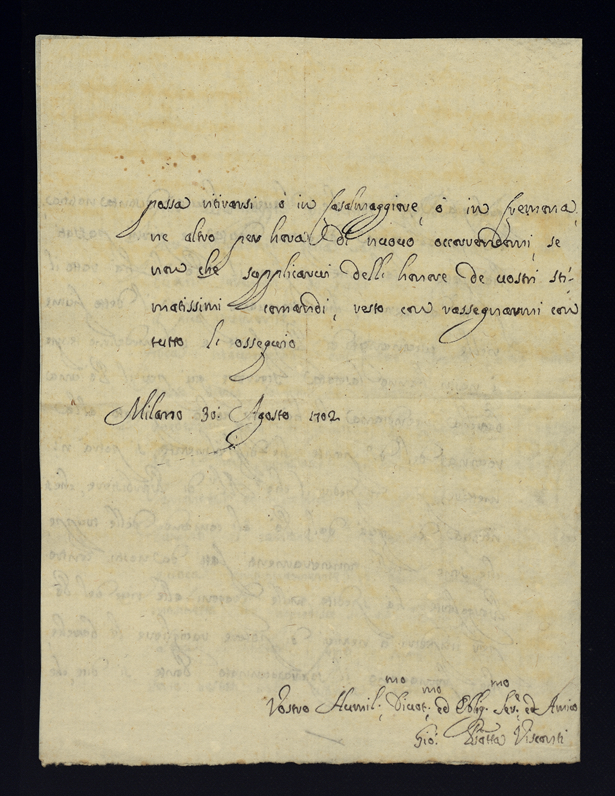 possa ritirarsi ò in Casalmaggiore, ò in Cremona,
ne altro per hora di nuovo occorrendomi, se
non che supplicarvi dell' honore de vostri sti-
matissimi comandi, resto con rassegnarmi con
tutto l' ossequio
Milano 30: Agosto 1702
Vostro Humil.mo Divot.mo ed Oblig.mo Ser.e ed Amico
Gio: Batta Visconti